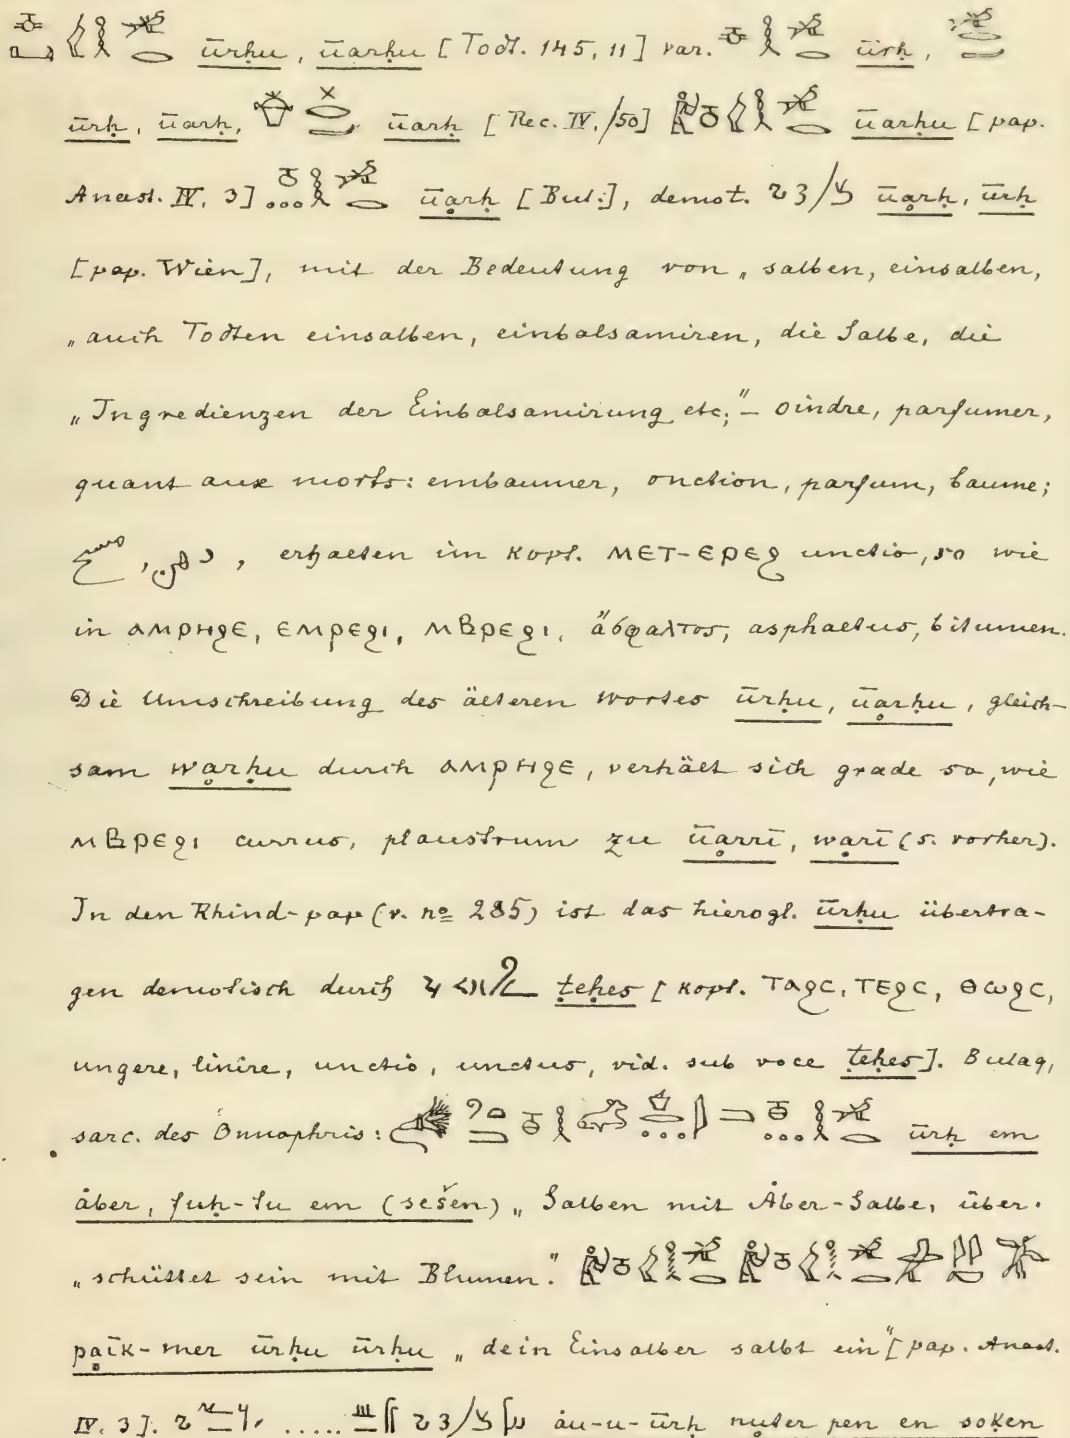 ūrḥu, ūarḥu [Todt. 145, 11] var. ūrḥ,
ūrḥ, ūarḥ, ūarḥ [Rec. IV,/50] ūarḥu [pap.
Anast. IV. 3] ūarḥ [Bul:], demot. ūarḥ, ūrḥ
[pap. Wien], mit der Bedeutung von „salben, einsalben,
„auch Todten einsalben, einbalsamiren, die Salbe, die
„Ingredienzen der Einbalsamirung etc;" – oindre, parfumer,
quant aux morts: embaumer, onction, parfum, baume;
مسح, دهن, erhalten im Kopt. ⲘⲈⲦ-ⲈⲢⲈϨ unctio, so wie
in ⲀⲘⲢⲎϨⲈ, ⲈⲘⲢⲈϨⲒ, ⲘⲂⲢⲈϨⲒ, ἄσφαλτος, asphaltus, bitumen.
Die Umschreibung des älteren Wortes ūrḥu, ūarḥu, gleich-
sam warḥu durch ⲀⲘⲢⲎϨⲈ, verhält sich grade so, wie
ⲘⲂⲢⲈϨⲒ currus, plaustrum zu ūarrī, warī (s. vorher).
In den Rhind-pap (v. nº 285) ist das hierogl. ūrḥu übertra-
gen demotisch durch teḥes [Kopt. ⲦⲀϨⲤ, ⲦⲈϨⲤ, ⲐⲰϨⲤ,
ungere, linire, unctio, unctus, vid. sub voce teḥes]. Bulaq,
sarc. des Onnophris: ūrḥ em
åber, fuḥ-tu em (sešen) „Salben mit Åber-Salbe, über-
„schüttet sein mit Blumen."
paīk-mer ūrḥu ūrḥu „dein Einsalber salbt ein" [pap. Anast.
IV. 3]. ..... åu-u-ūrḥ nuter pen en soken